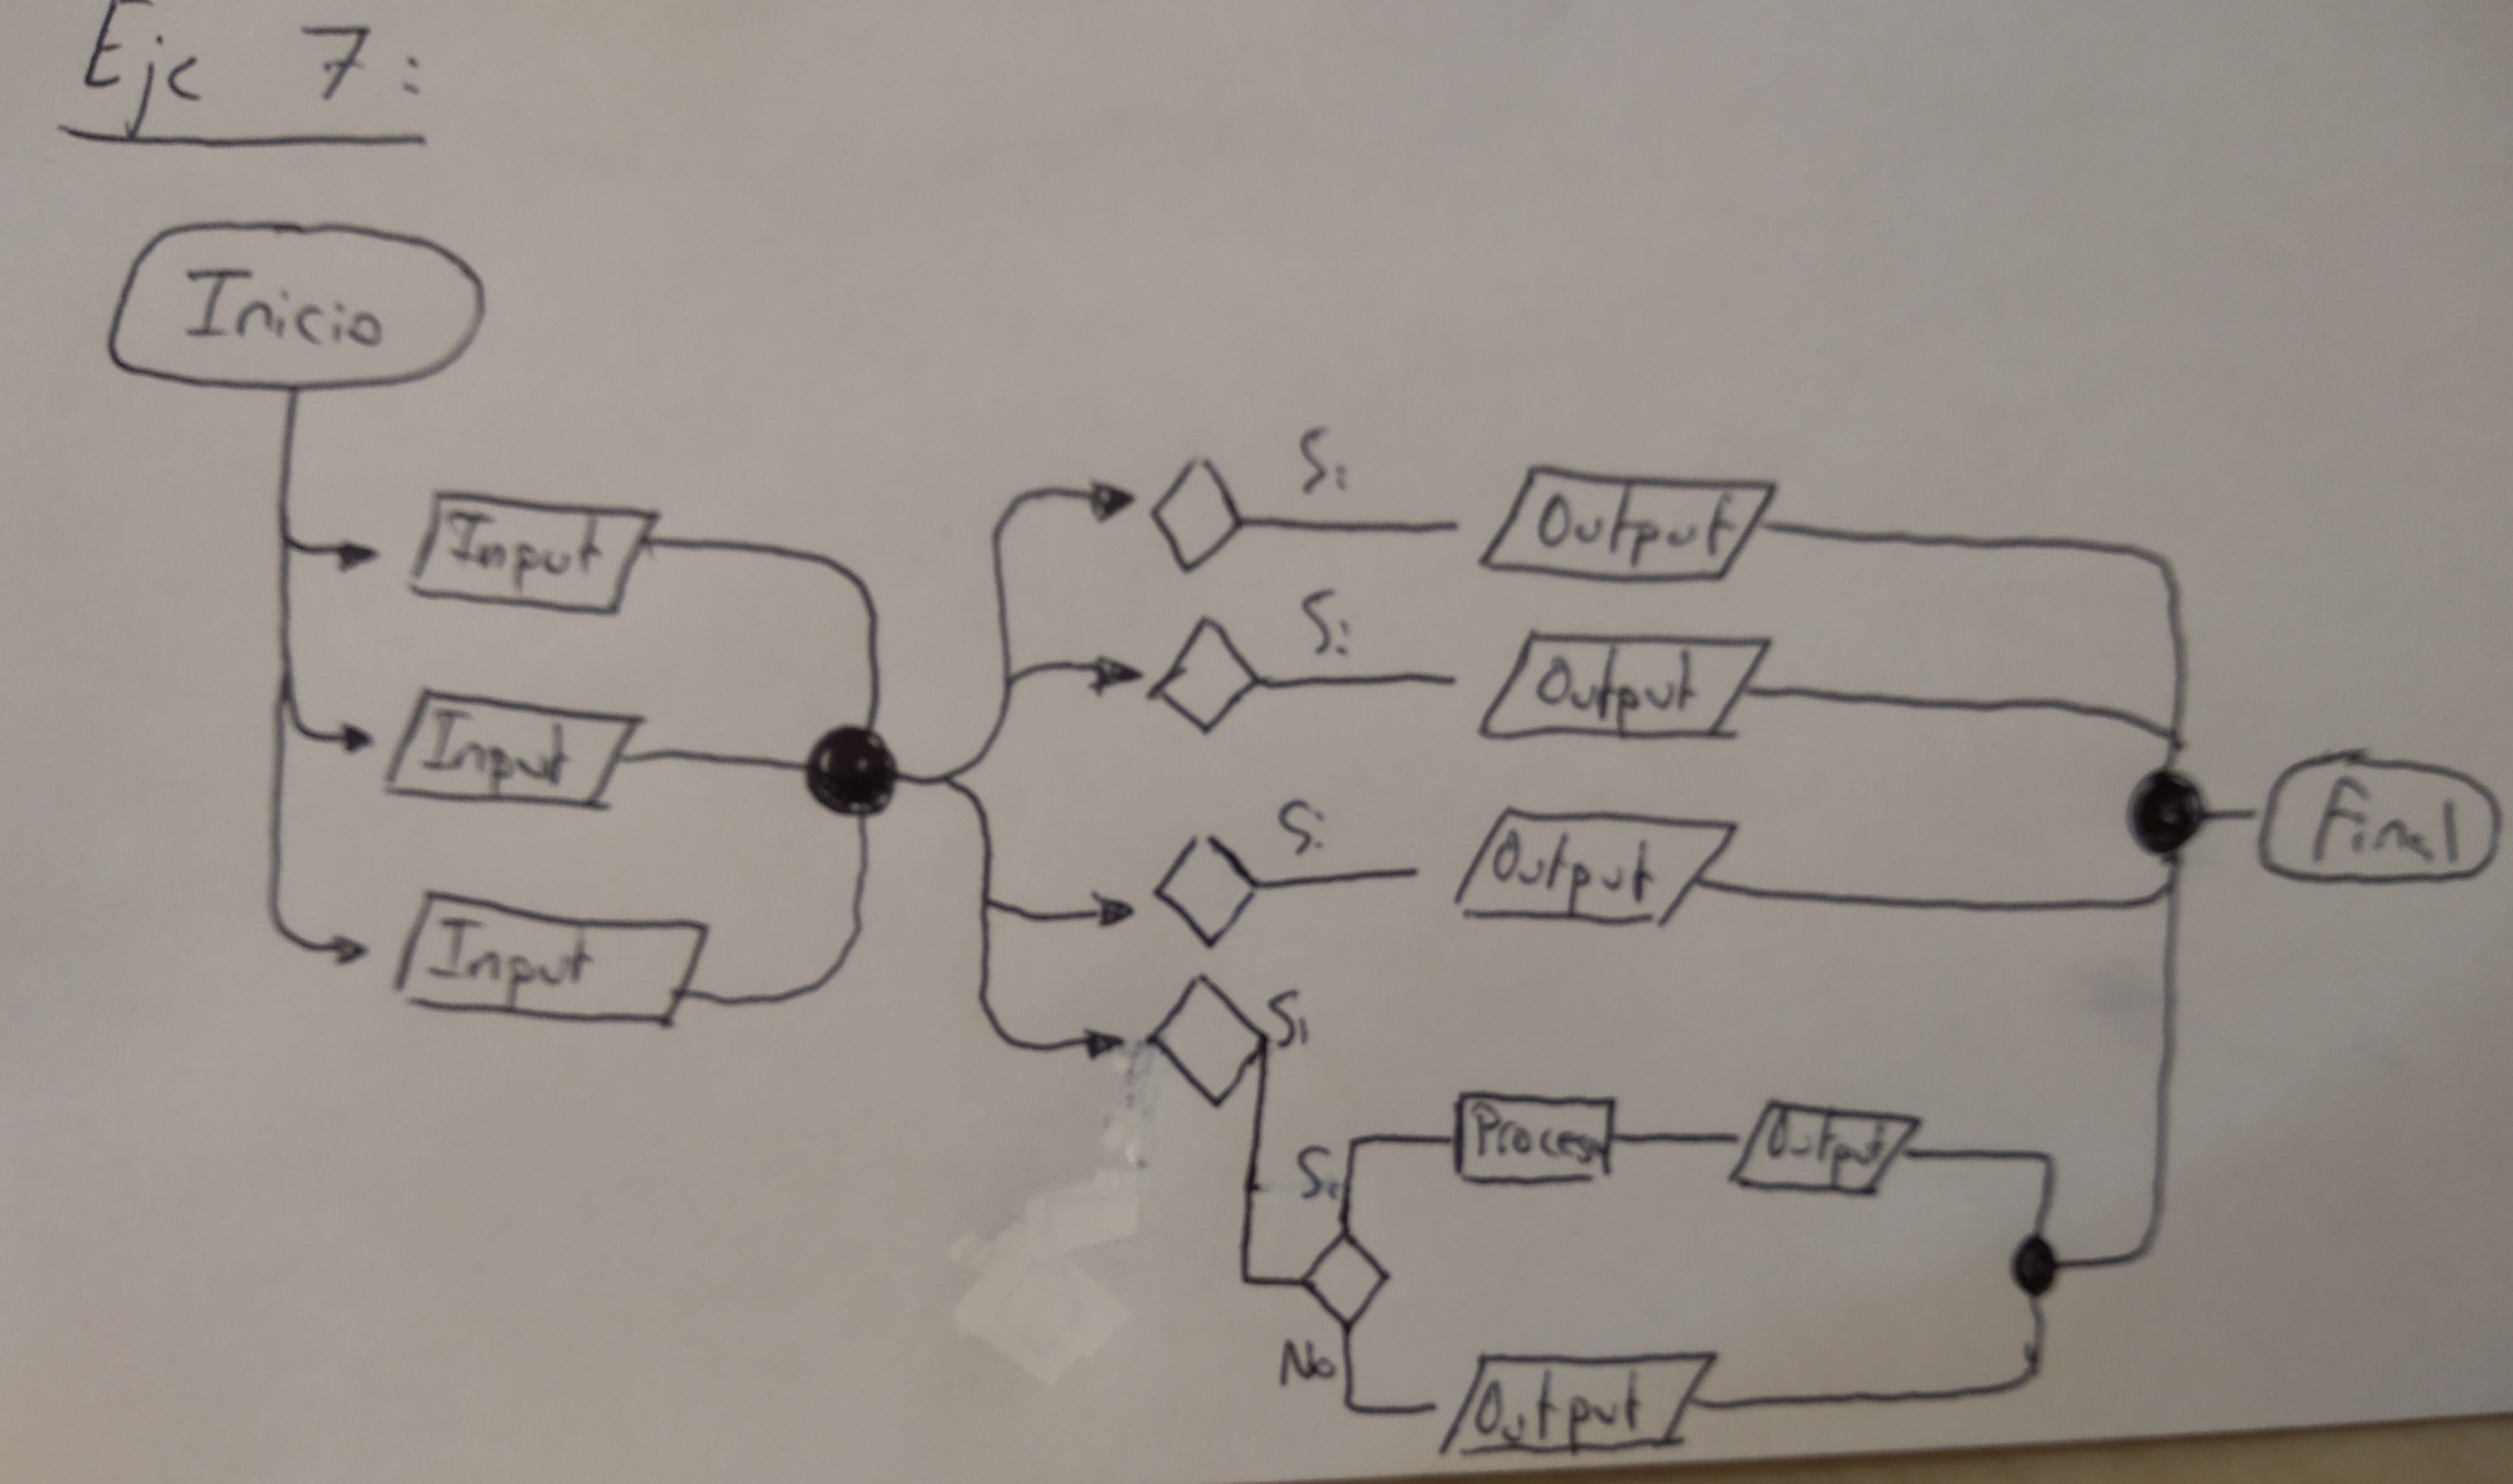 Ejc 7:
Inicio
Input
Input
Input
Si
Output
Si
Output
Si
Output
Final
Si
Si
Proceso
Output
No
Output